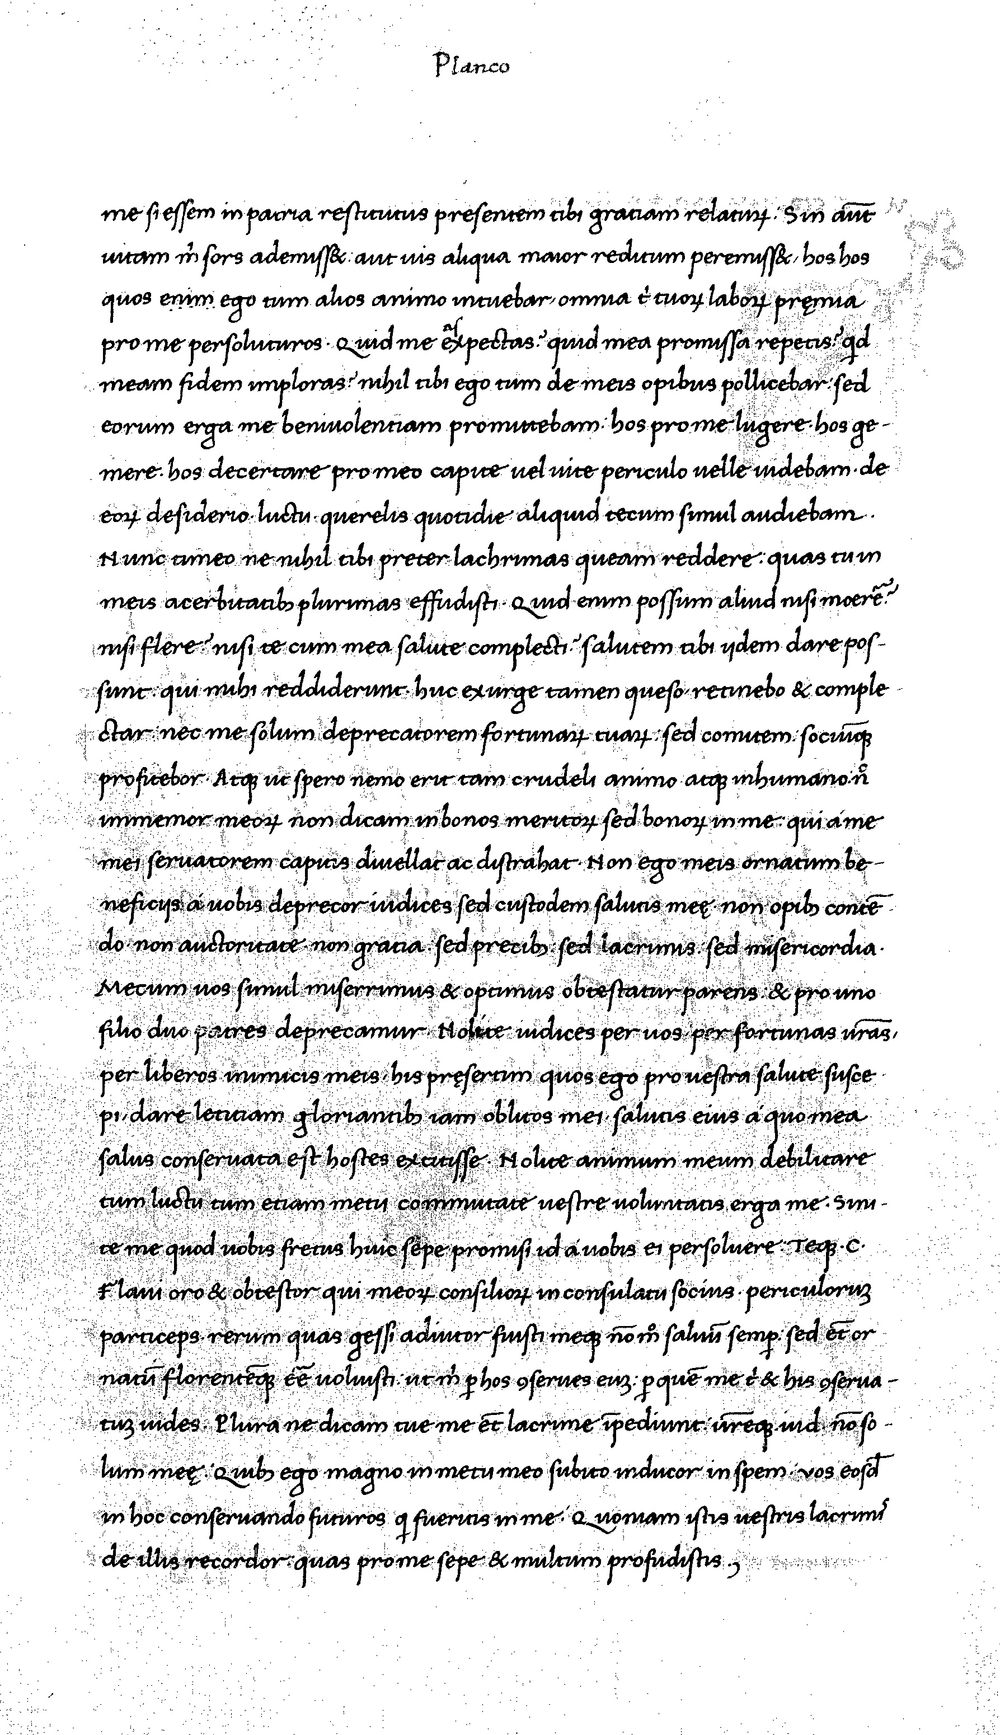 Planco
me si essem in patria restitutus presentem tibi gratiam relaturꝝ. Sin aūt
uitam m̄ sors ademiss&. aut uis aliqua maior reditum peremiss&, hos hos
quos enim ego tum alios animo intuebar, omnia t̄ tuoꝝ laboꝝ pręmia
pro me persoluturos. Quid me expectas? quid mea promissa repetis? qd
meam fidem imploras? nihil tibi ego tum de meis opibus pollicebar. sed
eorum erga me beniuolentiam promittebam. hos pro me lugere. hos ge-
mere. hos decertare pro meo capite uel uite periculo uelle uidebam. de
eoꝝ desiderio luctu querelis quotidie aliquid tecum simul audiebam.
Nunc timeo ne nihil tibi preter lachrimas queam reddere. quas tu in
meis acerbitatibꝫ plurimas effudisti. Quid enim possum aliud nisi moerē?
nisi flere? nisi te cum mea salute complecti? salutem tibi ijdem dare pos-
sunt. qui mihi reddiderunt. huc exurge tamen queso. retinebo & comple
ctar. nec me solum deprecatorem fortunaꝝ tuaꝝ. sed comitem. sociūqꝫ
profitebor. Atqꝫ ut spero nemo erit tam crudeli animo atqꝫ inhumano. n̄
immemor meoꝝ non dicam in bonos meritoꝝ sed bonoꝝ in me. qui a me
mei seruatorem capitis diuellat ac distrahat. Non ego meis ornatum be-
neficijs a uobis deprecor iudices sed custodem salutis meę. non opibꝫ contē
do. non auctoritate. non gratia. sed precibꝫ. sed lacrimis. sed misericordia.
Mecum uos simul miserrimus & optimus obtestatur parens. & pro uno
filio duo patres deprecamur. Nolite iudices per uos. per fortunas ur̄as,
per liberos inimicis meis. his pręsertim quos ego pro uestra salute susce
pi. dare letitiam gloriantibꝫ iam oblitos mei. salutis eius a quo mea
salus conseruata est hostes extitisse. Nolite animum meum debilitare
tum luctu tum etiam metu commutate uestre uoluntatis erga me. Sini-
te me quod uobis fretus huic sepe promisi id a uobis ei persoluere. Teqꝫ. C.
Flaui oro & obtestor qui meoꝝ consilioꝝ in consulatu socius. periculorūꝫ
particeps. rerum quas gessi adiutor fuisti meqꝫ nō mº saluū semꝑ. sed et̄ or
natū florentēqꝫ eē uoluisti. ut m̄ ꝑ hos ꝯserues euꝫ. ꝑ quē me t̄ & his ꝯserua-
tuꝫ uides. Plura ne dicam tue me et̄ lacrime īpediunt. ur̄eqꝫ iud. nō so-
lum meę. Quibꝫ ego magno in metu meo subito inducor in spem. vos eosd̄
in hoc conseruando futuros qͥ fueritis in me. Quoniam istis uestris lacrimꝭ
de illis recordor. quas pro me sepe & multum profudistis.,